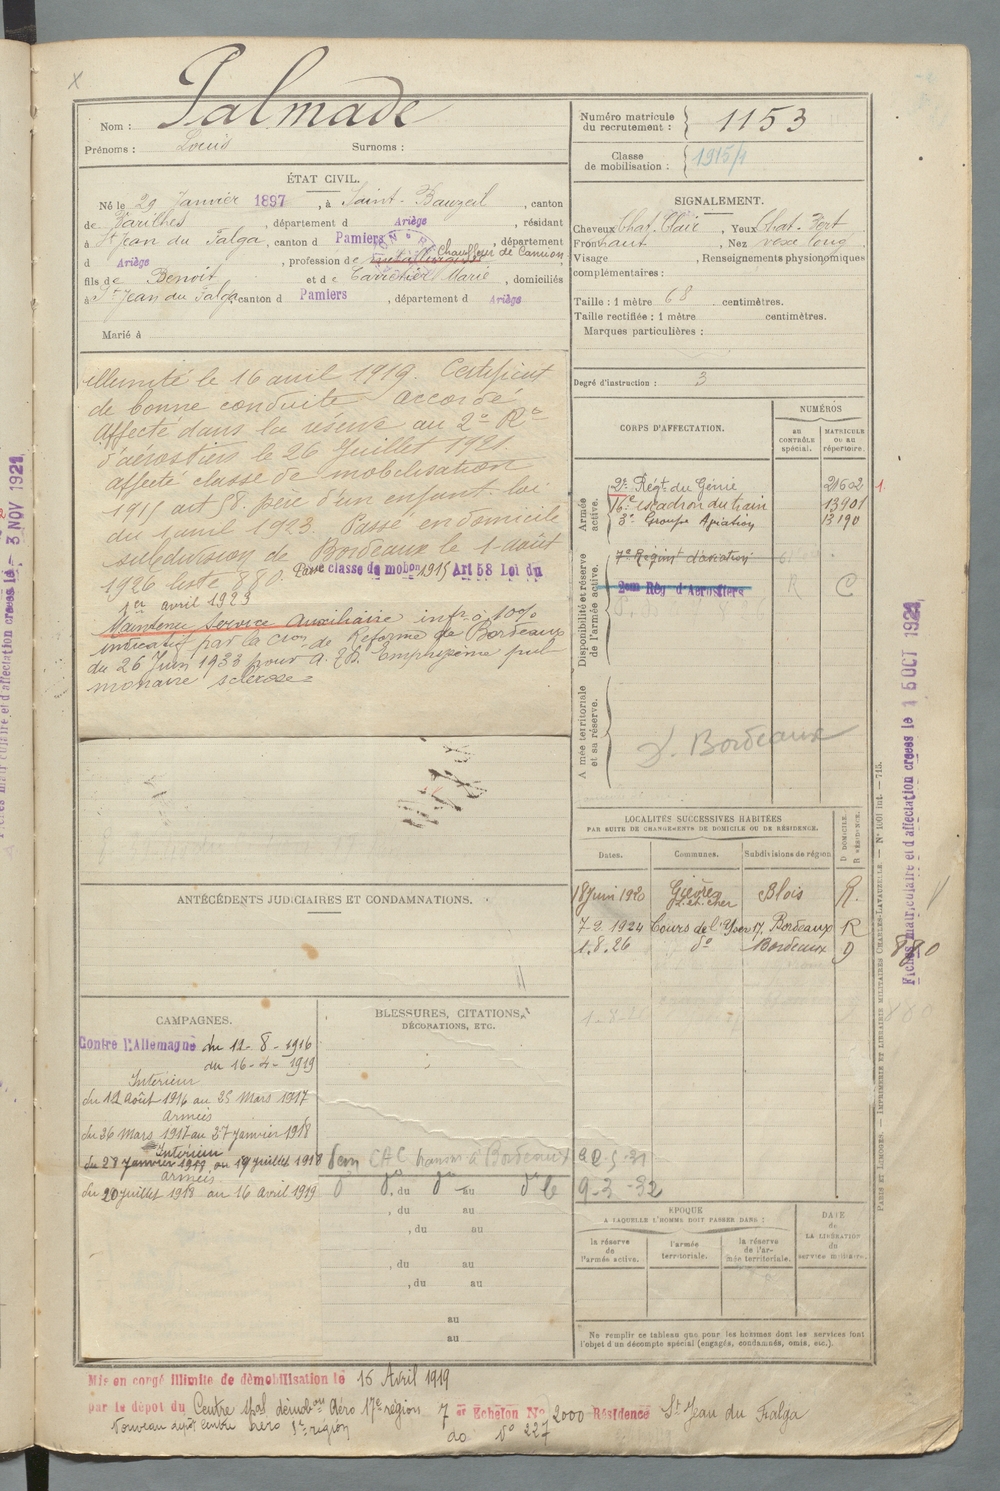 X
Nom : Palmade
Prénoms : Louis Surnoms :
Numéro matricule du recrutement : 1153
Classe de mobilisation : 1915/1
ÉTAT CIVIL.
Né le 29 Janvier 1897, à Saint-Bauzeil, canton
de Varilhes, département d Ariège, résidant
à St Jean du Falga, canton d Pamiers, département
d Ariège, profession de Chauffeur de Camion,
fils de Benoit et de Carretier Marie, domiciliés
à St Jean du Falga canton d Pamiers, département d Ariège
Marié à
SIGNALEMENT.
Cheveux Chat. Clair, Yeux Chat. Vert
Front haut, Nez vexe long
Visage , Renseignements physionomiques
complémentaires :
Taille : 1 mètre 68 centimètres.
Taille rectifiée : 1 mètre centimètres.
Marques particulières :
Degré d'instruction : 3
illimité le 16 avril 1919. Certificat
de bonne conduite accordé
Affecté dans la réserve au 2e Rt
d'aérostiers le 26 Juillet 1921.
affecté classe de mobilisation
1915 art 58. père d'un enfant. loi
du 1 avril 1923 Passé en domicile
subdivision de Bordeaux le 1 août
1926 liste 880. Passé classe de mobon 1915 Art 58 Loi du
1er avril 1923
Maintenu Service Auxiliaire inf. à 10%
indicatif par la Cion de Réforme de Bordeaux
du 26 Juin 1933 pour
Emphysème pul
monaire sclérose
CORPS D'AFFECTATION.
NUMÉROS
au CONTRÔLE spécial.
MATRICULE OU AU répertoire.
Armée active.
2e Régt du Génie 21602 1.
16e escadron du train 13901
3e Groupe Aviation 13190
Disponibilité et réserve de l'armée active.
7e Régimt d'aviation
2em Rég d'Aerostiers R C
Armée territoriale et sa réserve.
Bordeaux
LOCALITÉS SUCCESSIVES HABITÉES
PAR SUITE DE CHANGEMENTS DE DOMICILE OU DE RÉSIDENCE.
Dates. Communes. Subdivisions de région D DOMICILE. R RÉSIDENCE.
18 juin 1920 Gièvres L. et. Cher Blois R.
7-2 1924 Cours de l'Yser 17. Bordeaux R
1.8.26 do Bordeaux D 880
ANTÉCÉDENTS JUDICIAIRES ET CONDAMNATIONS.
CAMPAGNES.
Contre l'Allemagne du 12-8-1916
du 16-4-1919
Intérieur
du 12 Août 1916 au 25 Mars 1917
armées
du 26 Mars 1917 au 27 janvier 1918
Intérieur
du 28 Janvier 1918 au 19 juillet 1918
armées
du 20 juillet 1918 au 16 Avril 1919
BLESSURES, CITATIONS,
DÉCORATIONS, ETC.
CAC transm à Bordeaux
, du au 9-3-32
, du au
, du au
, du au
, du au
au
au
ÉPOQUE
A LAQUELLE L'HOMME DOIT PASSER DANS :
la réserve de l'armée active.
l'armée territoriale.
la réserve de l'armée territoriale.
DATE de LA LIBÉRATION du service militaire.
Ne remplir ce tableau que pour les hommes dont les services font
l'objet d'un décompte spécial (engagés, condamnés, omis, etc.).
Mis en congé illimité de démobilisation le 16 Avril 1919
par le dépôt du Centre démobon Aéro 17e région 7 er Echelon No 2000 Résidence St Jean du Falga
Nouveau dépôt Centre aéro région do No 227
Fiches matriculaire et d'affectation creées le - 3 NOV 1921
Fiches matriculaire et d'affectation creées le 15 OCT 1924
PARIS ET LIMOGES. — IMPRIMERIE ET LIBRAIRIE MILITAIRES CHARLES-LAVAUZELLE. —